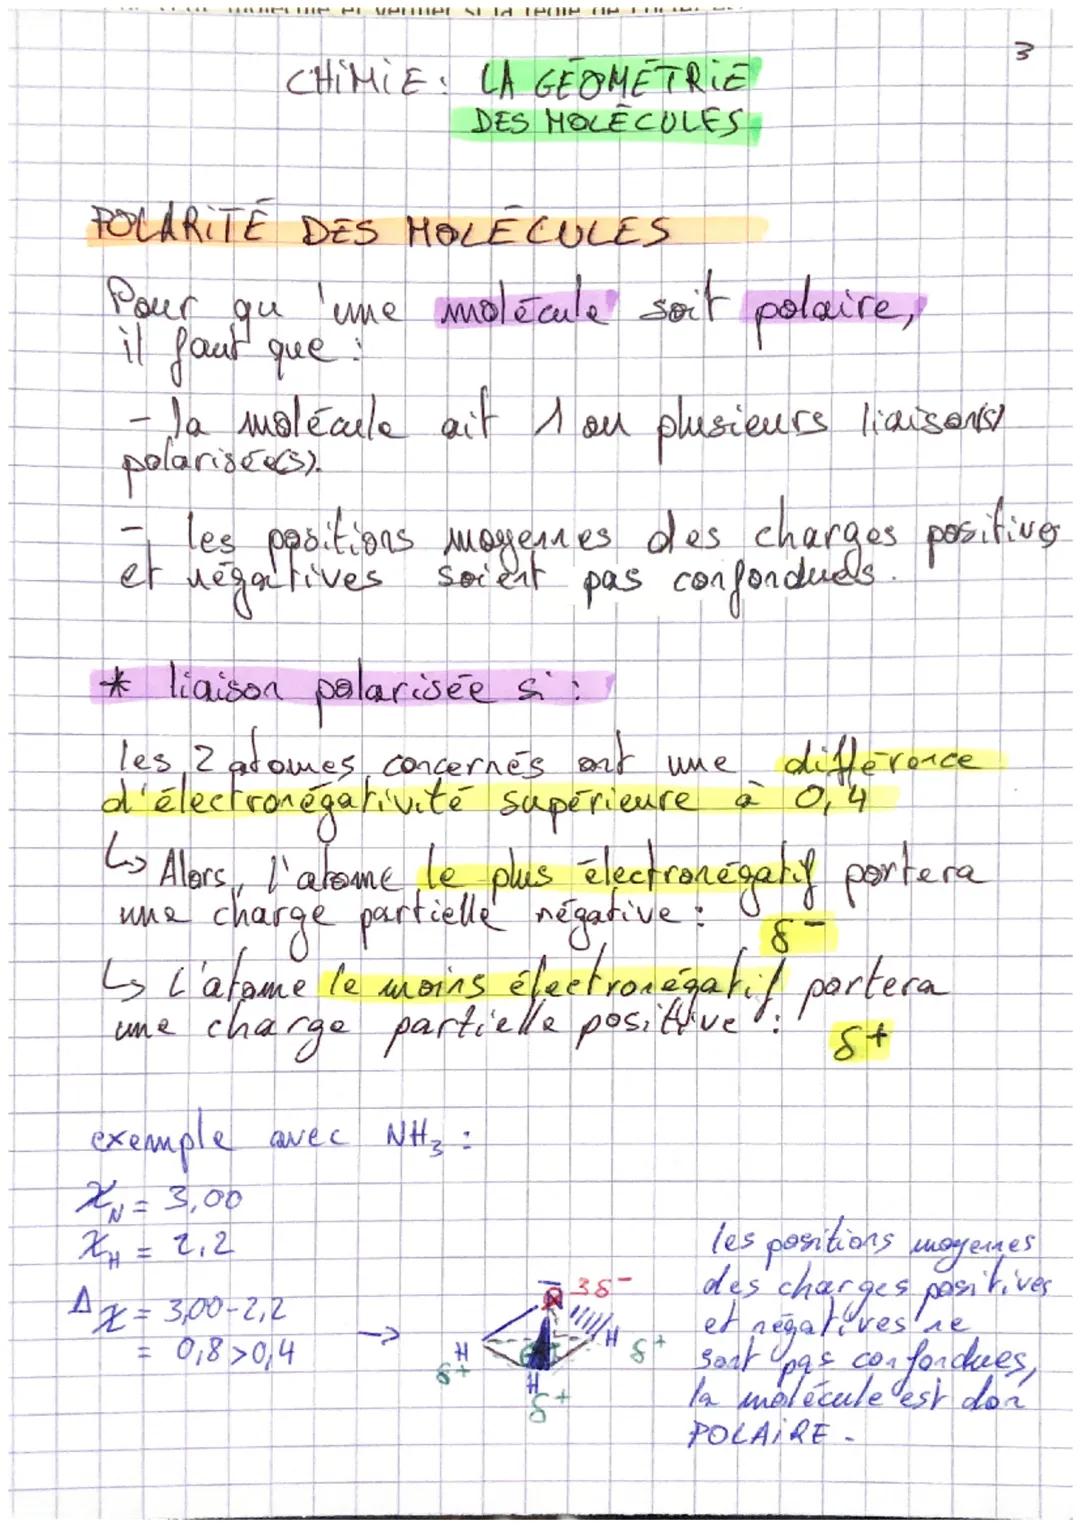 3
CHIMIE : LA GÉOMÉTRIE
DES MOLÉCULES
POLARITÉ DES MOLÉCULES
Pour qu'une molécule soit polaire,
il faut que :
- la molécule ait 1 ou plusieurs liaison(s)
polarisée(s).
- les positions moyennes des charges positives
et négatives soient pas confondues.
* liaison polarisée si :
les 2 atomes concernés ont une différence
d'électronégativité supérieure à 0,4
↳ Alors, l'atome le plus électronégatif portera
une charge partielle négative : δ-
↳ L'atome le moins électronégatif portera
une charge partielle positive : δ+
exemple avec NH₃ :
χN = 3,00
χH = 2,2
Δχ = 3,00-2,2
= 0,8>0,4
→
3δ-
H
δ+
H
δ+
H
δ+
les positions moyennes
des charges positives
et négatives ne
sont pas confondues,
la molécule est don
POLAIRE.